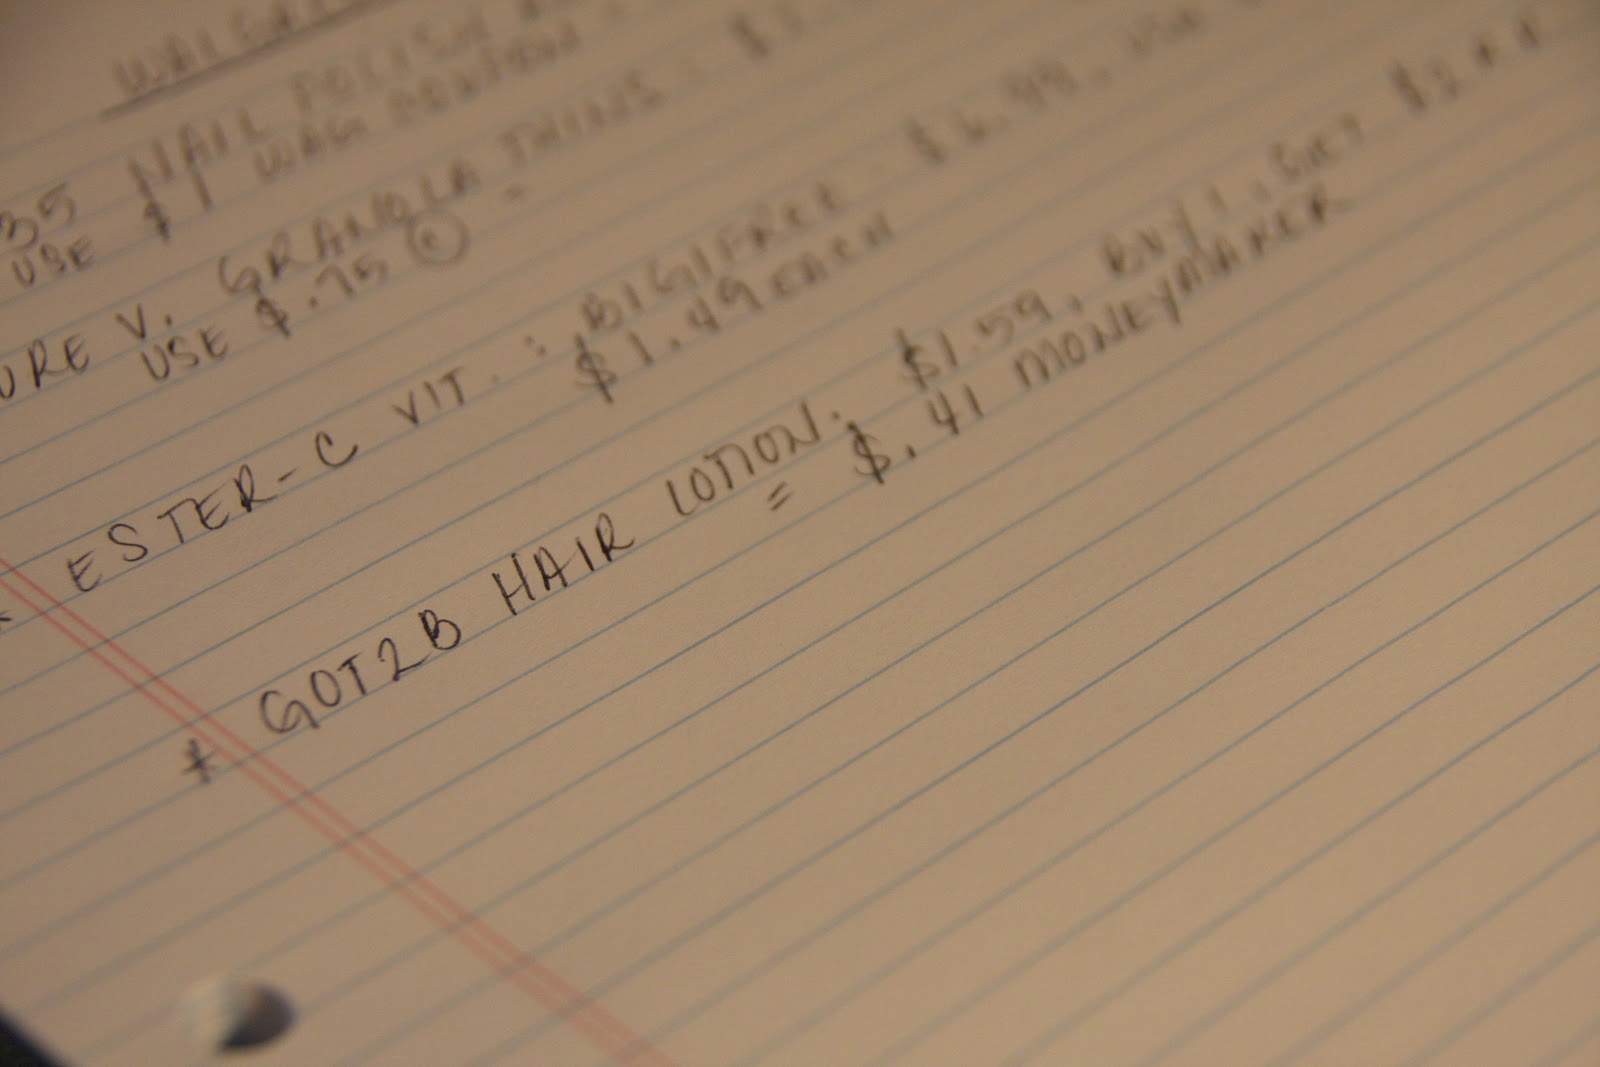 35 NAIL POLISH
USE $1 WAG COUPON
URE V. GRANOLA THINS : $
USE $.75 C =
* ESTER-C VIT. : B1G1 FREE : $6.99, USE
$1.49 EACH
* GOT2B HAIR LOTION: $1.59, BUY 1, GET $2 RR
= $.41 MONEYMAKER